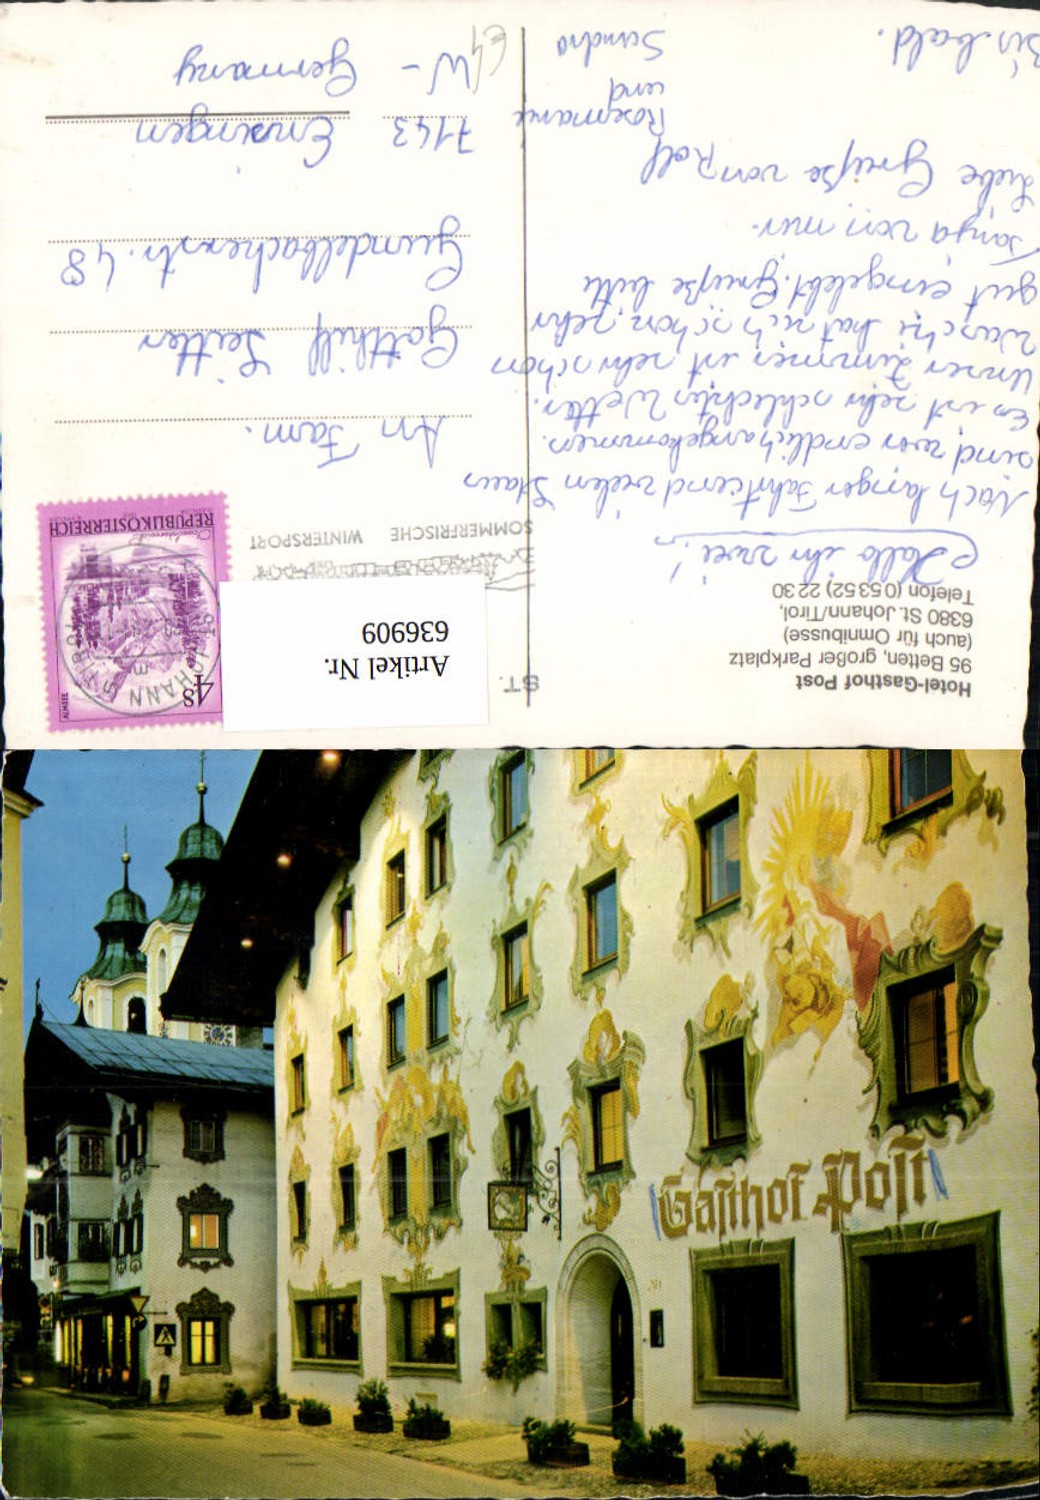 Hotel-Gasthof Post
95 Betten, großer Parkplatz
(auch für Omnibusse)
6380 St. Johann/Tirol,
Telefon (05352) 2230
Hallo ihr zwei!
Nach langer Fahrt und vielen Staus
sind wir endlich angekommen.
Es ist sehr schlechtes Wetter.
Unser Zimmer ist sehr schön
hat sich schon sehr
gut eingelebt. Grüße bitte
Tanja von mir.
Liebe Grüße von Rolf
Rosemarie
und
Sandra
Bis bald.
ST.
SOMMERFRISCHE WINTERSPORT
Artikel Nr.
636909
REPUBLIK ÖSTERREICH
4s
ALMSEE
ST. JOHANN
An Fam.
Gotthilf Seitter
Gündelbacherstr. 48
7143 Ensingen
W - Germany
Gasthof Post